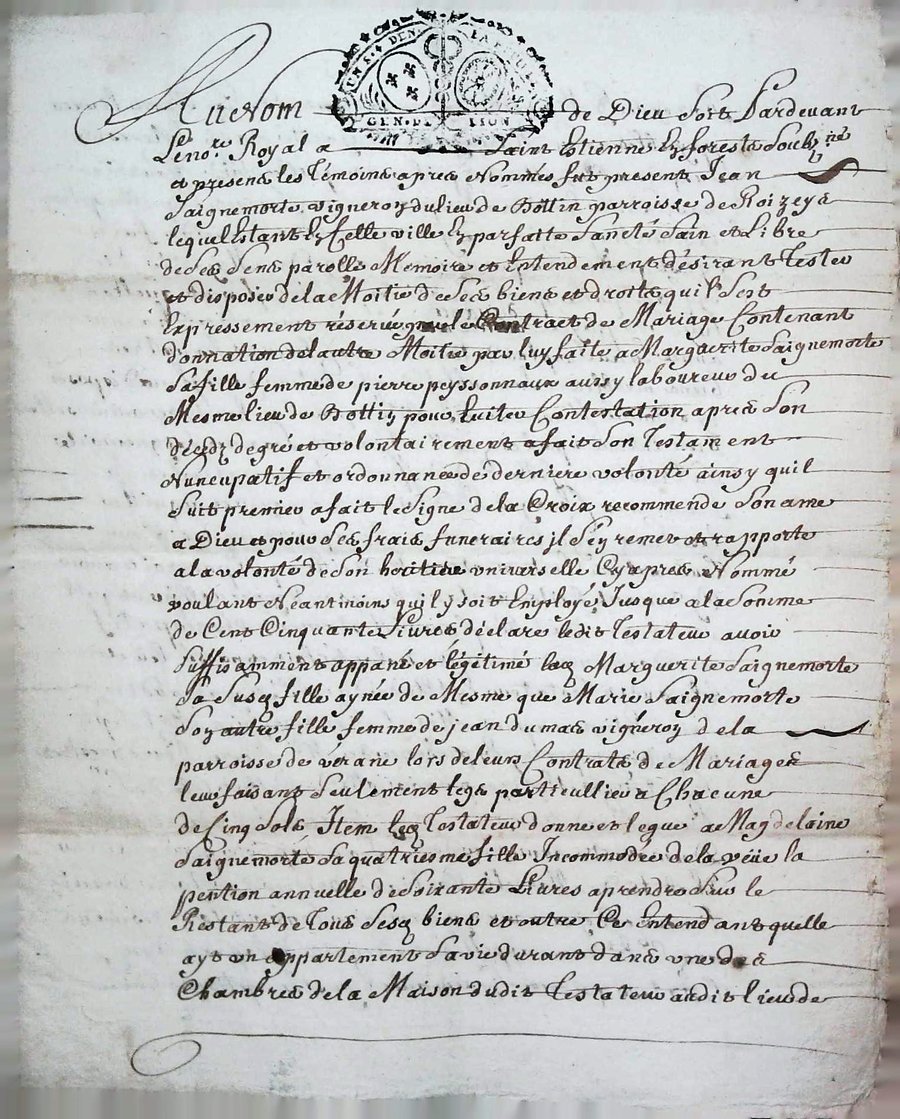 UN S. DEN LA FEUILLE
GEN. DE LION
Au Nom de Dieu soit Pardevant
Le no.re Royal a Saint Estienne En forests Soubz.né
et presens les Témoins apres Nommés fut present Jean
Saignemorte vigneron du lieu de Bottin parroisse de Roizeys
lequel Estant En Celle ville En parfaite Santé Sain et Libre
de Ses Sens parolle Mémoire et Entendement désirant Tester
et disposer de la Moitié de Ses biens et droits quil Sest
Expressement réservé par le Contract de Mariage Contenant
donnation de lautre Moitié par luy faite a Marguerite Saignemorte
Sa fille femme de pierre peyssonnaux aussy laboureur du
Mesme lieu de Bottin pour Eviter Contestation apres Son
décedz de gré et volontairement a fait Son Testament
Nuncupatif et ordonnance de derniere volonté ainsy quil
Suit premier a fait le Signe de la Croix recommende Son ame
a Dieu et pour Ses frais funeraires jl S'ey remet et rapporte
a la volonté de Son heritiere vniverselle Cy apres Nommé
voulant Néantmoins quil y soit Employé Jusque a la Somme
de Cent Cinquante Livres déclare ledit Testateur avoir
Suffisamment appané et légitimé lad Marguerite Saignemorte
Sa Susd fille aynée de Mesme que Marie Saignemorte
Son autre fille femme de jean dumas vigneron de la
parroisse de vérane lors de leurs Contrats de Mariages
leur faisant Seulement legs particullier a Chacune
de Cinq Sols Item led Testateur donne et legue a Magdelaine
Saignemorte Sa quatriesme fille Incommodée de la veüe la
pention annuelle de Soixante Livres a prendre Sur le
Restant de Tous Sesd biens et outre Ce Entendant quelle
ayt vn appartement Sa vie durant dans vne des
Chambres de la Maison dudit Testateur audit lieu de